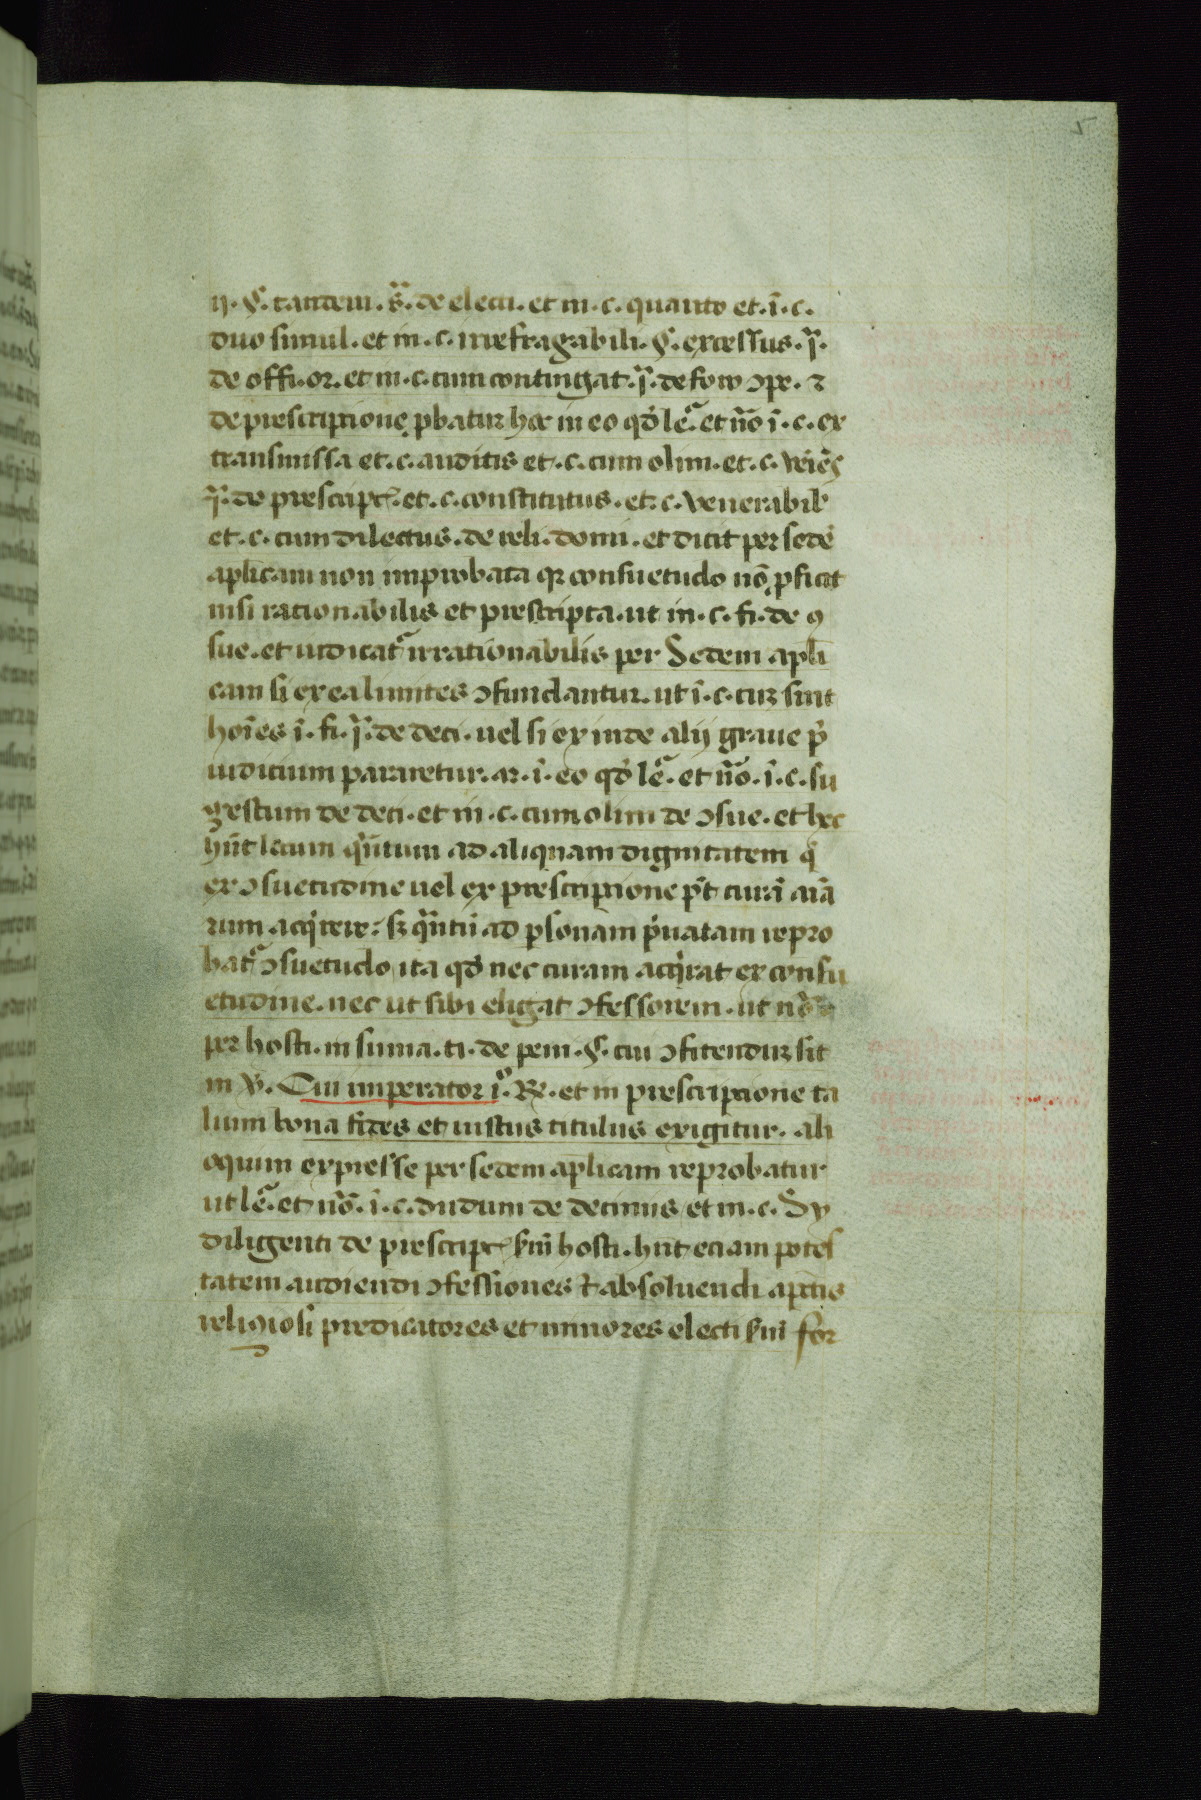 5
ij. §. tandem. s̃. de elect. et in. c. quanto et. ĩ. c.
duo simul. et in. c. irrefragabili. §. excessus. ꝗ̃.
de offi. or. et in. c. cum contingat. ꝗ̃. de foro ↄpe. ⁊
de prescriptione ꝓbatur hoc in eo qđ leᷓ. et nõo ĩ. c. ex
transmissa et. c. auditis et. c. cum olim. et. c.
ꝗ̃. de prescript. et. c. constitutus. et. c. venerabil
et. c. cum dilectus. de reli. domi. et dicit per sedẽ
aplicam non improbata qꝛ consuetudo nõ ꝓficit
nisi rationabilis et prescripta. ut in. c. fi. de ꝯ
sue. et iudicatᷣ irrationabilis per Sedem apl̃i
cam si ex ea limites ↄfundantur. ut ĩ. c. cuꝫ sint
hoĩes ĩ. fi. ꝗ̃. de deci. uel si ex inde alij graue p̃
iudicium pararetur. ar. ĩ. eo qđ leᷓ. et nõo. ĩ. c. su
gestum de deci. et in. c. cum olim de ↄsue. et hec
hñt locum q̃ntum ad aliquam dignitatem q̇
ex ↄsuetudine uel ex prescriptione p̃t curã aĩa
rum acq̇rere: sꝫ q̃ntũ ad ꝑsonam p̃uatam repro
batᷣ ↄsuetudo ita qđ nec curam acq̇rat ex consu
etudine. nec ut sibi eligat ↄfessorem. ut
per hosti. in suma. ti. de peni. §. cui ↄfitenduꝫ sit
in ℣. Cui imperator ĩº. ℞. et in prescriptione ta
lium bona fides et iustus titulus exigitur. ali
oquim expresse per sedem aplicam reprobatur
ut leᷓ. et nõo. ĩ. c. dudum de decimis et in. c. Sy
diligenti de prescript. hosti. hñt eciam potes
tatem audiendi ↄfessiones et absoluendi
religiosi predicatores et minores electi for